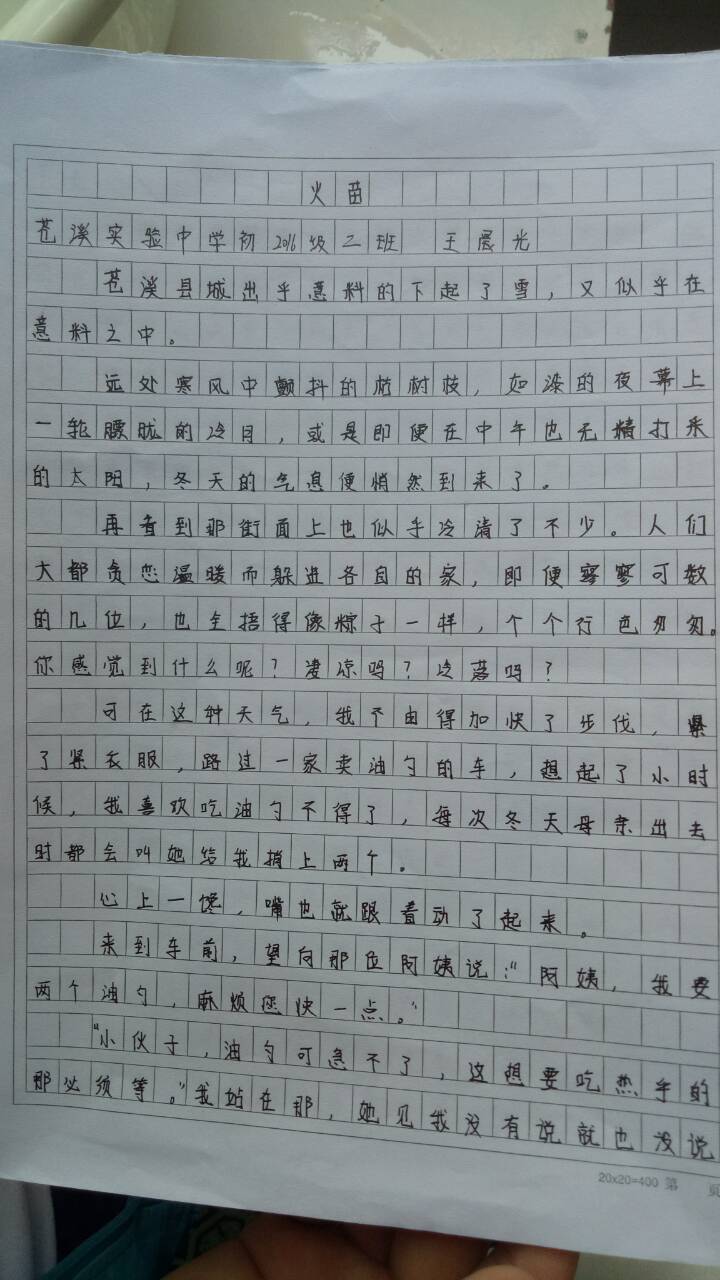 火苗
苍溪实验中学初2016级二班 王晨光
苍溪县城出乎意料的下起了雪，又似乎在
意料之中。
远处寒风中颤抖的枯树枝，如漆的夜幕上
一轮朦胧的冷月，或是即便在中午也无精打采
的太阳，冬天的气息便悄然到来了。
再看到那街面上也似乎冷清了不少。人们
大都贪恋温暖而躲进各自的家，即便寥寥可数
的几位，也全捂得像粽子一样，个个行色匆匆。
你感觉到什么呢？凄凉吗？冷落吗？
可在这种天气，我不由得加快了步伐，紧
了紧衣服，路过一家卖油勺的车，想起了小时
候，我喜欢吃油勺不得了，每次冬天母亲出去
时都会叫她给我捎上两个。
心上一馋，嘴也就跟着动了起来。
来到车前，望向那位阿姨说：“阿姨，我要
两个油勺，麻烦您快一点。”
“小伙子，油勺可急不了，这想要吃热乎的
那必须等。”我站在那，她见我没有说就也没说
20x20=400 第 页